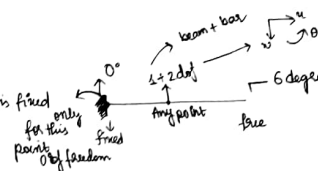 beam + bar
u
w
θ
0°
1 + 2 dof
6 degre
is fixed
only
for this
point
0° of freedom
fixed
Any point
free